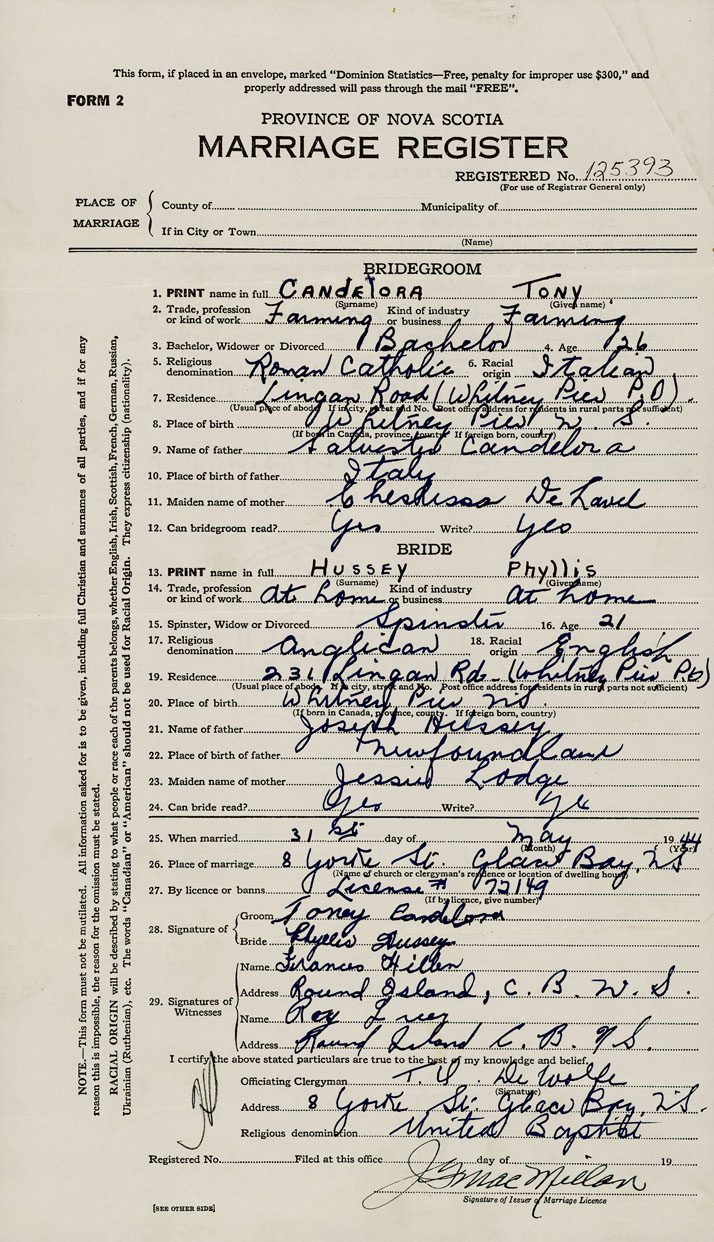 This form, if placed in an envelope, marked "Dominion Statistics—Free, penalty for improper use $300," and
properly addressed will pass through the mail "FREE".
FORM 2
PROVINCE OF NOVA SCOTIA
MARRIAGE REGISTER
REGISTERED No. 125393
(For use of Registrar General only)
PLACE OF MARRIAGE
County of Municipality of
If in City or Town
(Name)
BRIDEGROOM
1. PRINT name in full CANDELORA TONY
(Surname) (Given name)
2. Trade, profession or kind of work Farming Kind of industry or business Farming
3. Bachelor, Widower or Divorced Bachelor 4. Age 26
5. Religious denomination Roman Catholic 6. Racial origin Italian
7. Residence Lingan Road (Whitney Pier P.O).
(Usual place of abode. If in city, street and No. Post office address for residents in rural parts not sufficient)
8. Place of birth Whitney Pier, N. S.
(If born in Canada, province, county. If foreign born, country)
9. Name of father Salvester Candelora
10. Place of birth of father Italy
11. Maiden name of mother De
12. Can bridegroom read? Yes Write? Yes
BRIDE
13. PRINT name in full HUSSEY Phyllis
(Surname) (Given name)
14. Trade, profession or kind of work at home Kind of industry or business at home
15. Spinster, Widow or Divorced Spinster 16. Age 21
17. Religious denomination Anglican 18. Racial origin English
19. Residence 231 Lingan Rd- (Whitney Pier P.O)
(Usual place of abode. If in city, street and No. Post office address for residents in rural parts not sufficient)
20. Place of birth Whitney Pier N.S.
(If born in Canada, province, county. If foreign born, country)
21. Name of father Joseph Hussey
22. Place of birth of father Newfoundland
23. Maiden name of mother Jessie Lodge
24. Can bride read? Yes Write? Yes
25. When married 31 st day of May 1944
(Month) (Year)
26. Place of marriage 8 Yorke St. Glace Bay, NS
(Name of church or clergyman's residence or location of dwelling house)
27. By licence or banns License # 72149
(If by licence, give number)
28. Signature of
Groom Toney Candelora
Bride Phyllis Hussey
29. Signatures of Witnesses
Name Frances Hillen
Address Round Island, C. B. N. S.
Name Roy
Address Round Island C. B. N.S.
I certify the above stated particulars are true to the best of my knowledge and belief.
Officiating Clergyman De Wolfe
(Signature)
Address 8 Yorke St. Glace Bay, N.S.
Religious denomination United Baptist
Registered No. Filed at this office day of 19
J G MacMillan
Signature of Issuer of Marriage Licence
[SEE OTHER SIDE]
NOTE.—This form must not be mutilated. All information asked for is to be given, including full Christian and surnames of all parties, and if for any
reason this is impossible, the reason for the omission must be stated.
RACIAL ORIGIN will be described by stating to what people or race each of the parents belongs, whether English, Irish, Scottish, French, German, Russian,
Ukrainian (Ruthenian), etc. The words "Canadian" or "American" should not be used for Racial Origin. They express citizenship (nationality).